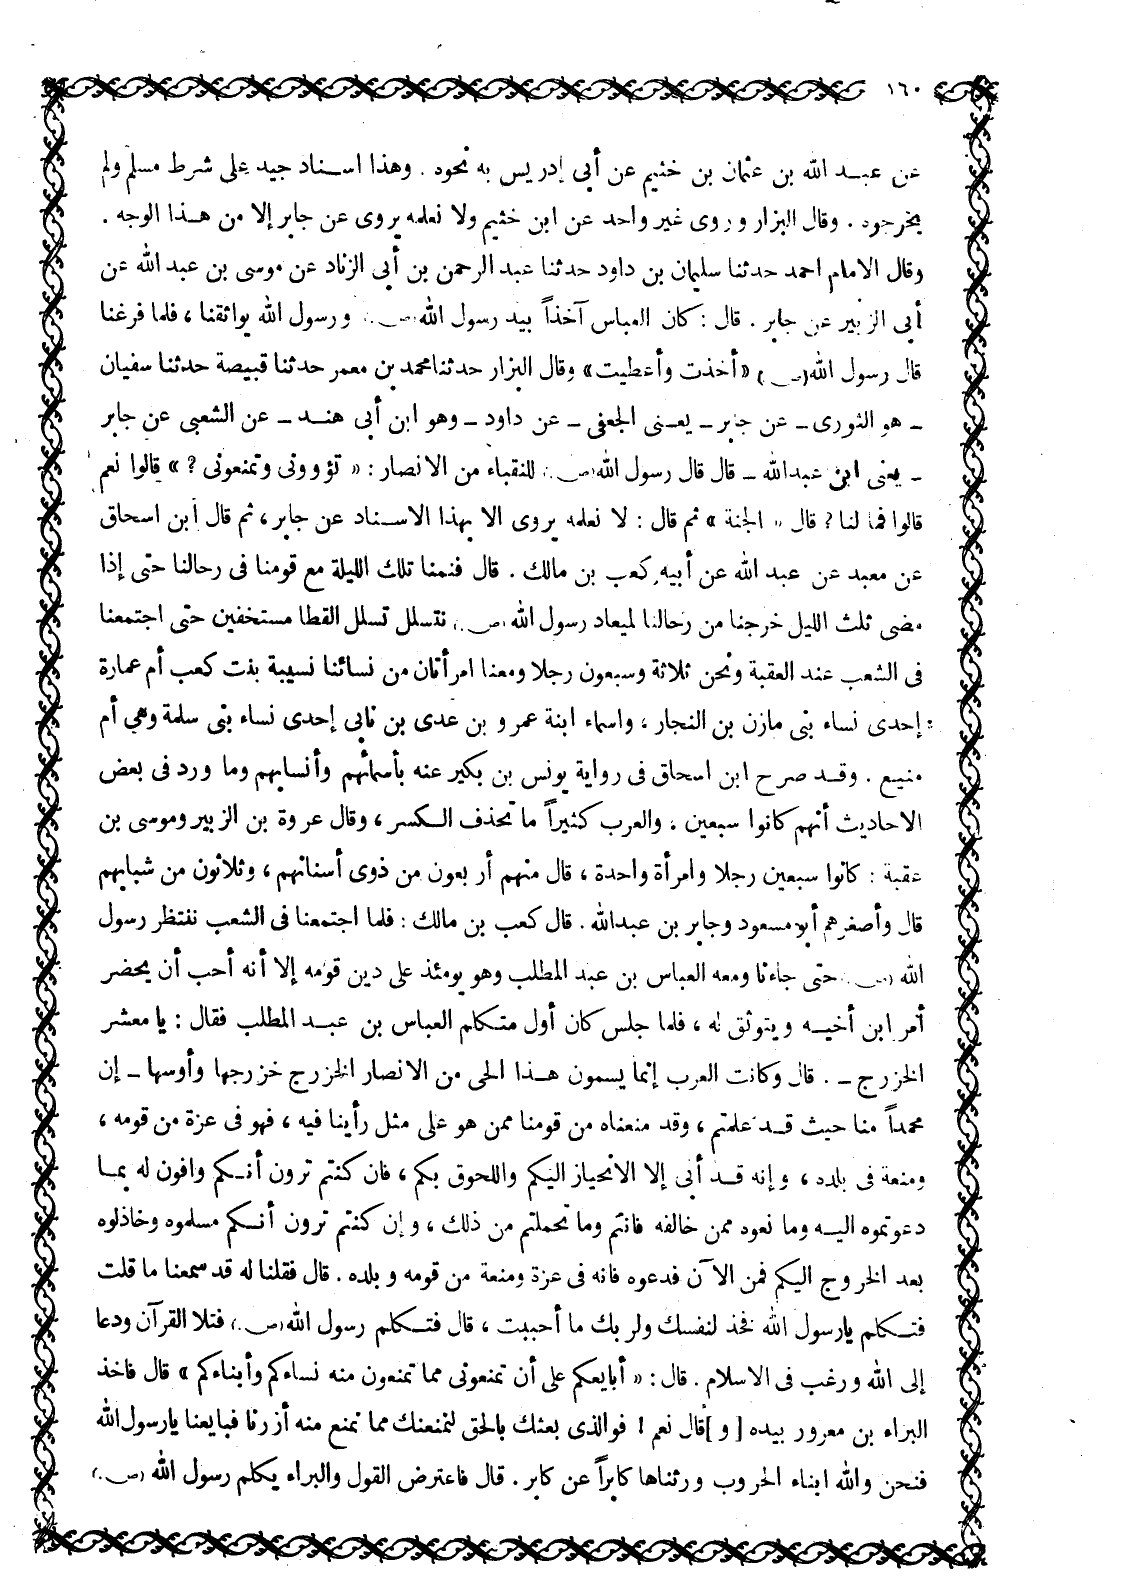 ١٦٠
عن عبد الله بن عثمان بن خثيم عن أبى إدريس به نحوه . وهذا اسناد جيد على شرط مسلم ولم
يخرجوه . وقال البزار وروى غير واحد عن ابن خثيم ولا نعلمه يروى عن جابر إلا من هذا الوجه .
وقال الامام احمد حدثنا سليمان بن داود حدثنا عبد الرحمن بن أبى الزناد عن موسى بن عبد الله عن
أبى الزبير عن جابر . قال : كان العباس آخذاً بيد رسول الله (ص) ورسول الله يواثقنا ، فلما فرغنا
قال رسول الله (ص) « أخذت وأعطيت » وقال البزار حدثنا محمد بن معمر حدثنا قبيصة حدثنا سفيان
ـ هو الثورى ـ عن جابر ـ يعنى الجعفى ـ عن داود ـ وهو ابن أبى هند ـ عن الشعبى عن جابر
ـ يعنى ابن عبدالله ـ قال قال رسول الله (ص) للنقباء من الانصار : « تؤوونى وتمنعونى ? » قالوا نعم
قالوا فما لنا ? قال « الجنة » ثم قال : لا نعلمه يروى الا بهذا الاسناد عن جابر ، ثم قال ابن اسحاق
عن معبد عن عبد الله عن أبيه كعب بن مالك . قال فنمنا تلك الليلة مع قومنا فى رحالنا حتى إذا
مضى ثلث الليل خرجنا من رحالنا لميعاد رسول الله (ص) نتسلل تسلل القطا مستخفين حتى اجتمعنا
فى الشعب عند العقبة ونحن ثلاثة وسبعون رجلا ومعنا امرأتان من نسائنا نسيبة بنت كعب أم عمارة
إحدى نساء بنى مازن بن النجار ، واسماء ابنة عمرو بن عدى بن نابى إحدى نساء بنى سلمة وهى أم
منيع . وقد صرح ابن اسحاق فى رواية يونس بن بكير عنه بأسمائهم وأنسابهم وما ورد فى بعض
الاحاديث أنهم كانوا سبعين ، والعرب كثيراً ما تحذف الكسر ، وقال عروة بن الزبير وموسى بن
عقبة : كانوا سبعين رجلا وامرأة واحدة ، قال منهم أربعون من ذوى أسنانهم ، وثلاثون من شبابهم
قال وأصغرهم أبو مسعود وجابر بن عبدالله . قال كعب بن مالك : فلما اجتمعنا فى الشعب ننتظر رسول
الله (ص) حتى جاءنا ومعه العباس بن عبد المطلب وهو يومئذ على دين قومه إلا أنه أحب أن يحضر
أمر ابن أخيه ويتوثق له ، فلما جلس كان أول متكلم العباس بن عبد المطلب فقال : يا معشر
الخزرج ـ . قال وكانت العرب إنما يسمون هذا الحى من الانصار الخزرج خزرجها وأوسها ـ إن
محمداً منا حيث قد علمتم ، وقد منعناه من قومنا ممن هو على مثل رأينا فيه ، فهو فى عزة من قومه ،
ومنعة فى بلده ، وإنه قد أبى إلا الانحياز اليكم واللحوق بكم ، فان كنتم ترون أنكم وافون له بما
دعوتموه اليه وما نعوه ممن خالفه فانتم وما تحملتم من ذلك ، وإن كنتم ترون أنكم مسلموه وخاذلوه
بعد الخروج اليكم فمن الآن فدعوه فانه فى عزة ومنعة من قومه وبلده . قال فقلنا له قد سمعنا ما قلت
فتكلم يارسول الله فخذ لنفسك ولربك ما أحببت ، قال فتكلم رسول الله (ص) فتلا القرآن ودعا
إلى الله ورغب فى الاسلام . قال : « أبايعكم على أن تمنعونى مما تمنعون منه نساءكم وأبناءكم » قال فاخذ
البراء بن معرور بيده [ و ] قال نعم ! فوالذى بعثك بالحق لنمنعنك مما نمنع منه أزرنا فبايعنا يارسول الله
فنحن والله ابناء الحروب ورثناها كابراً عن كابر . قال فاعترض القول والبراء يكلم رسول الله (ص)